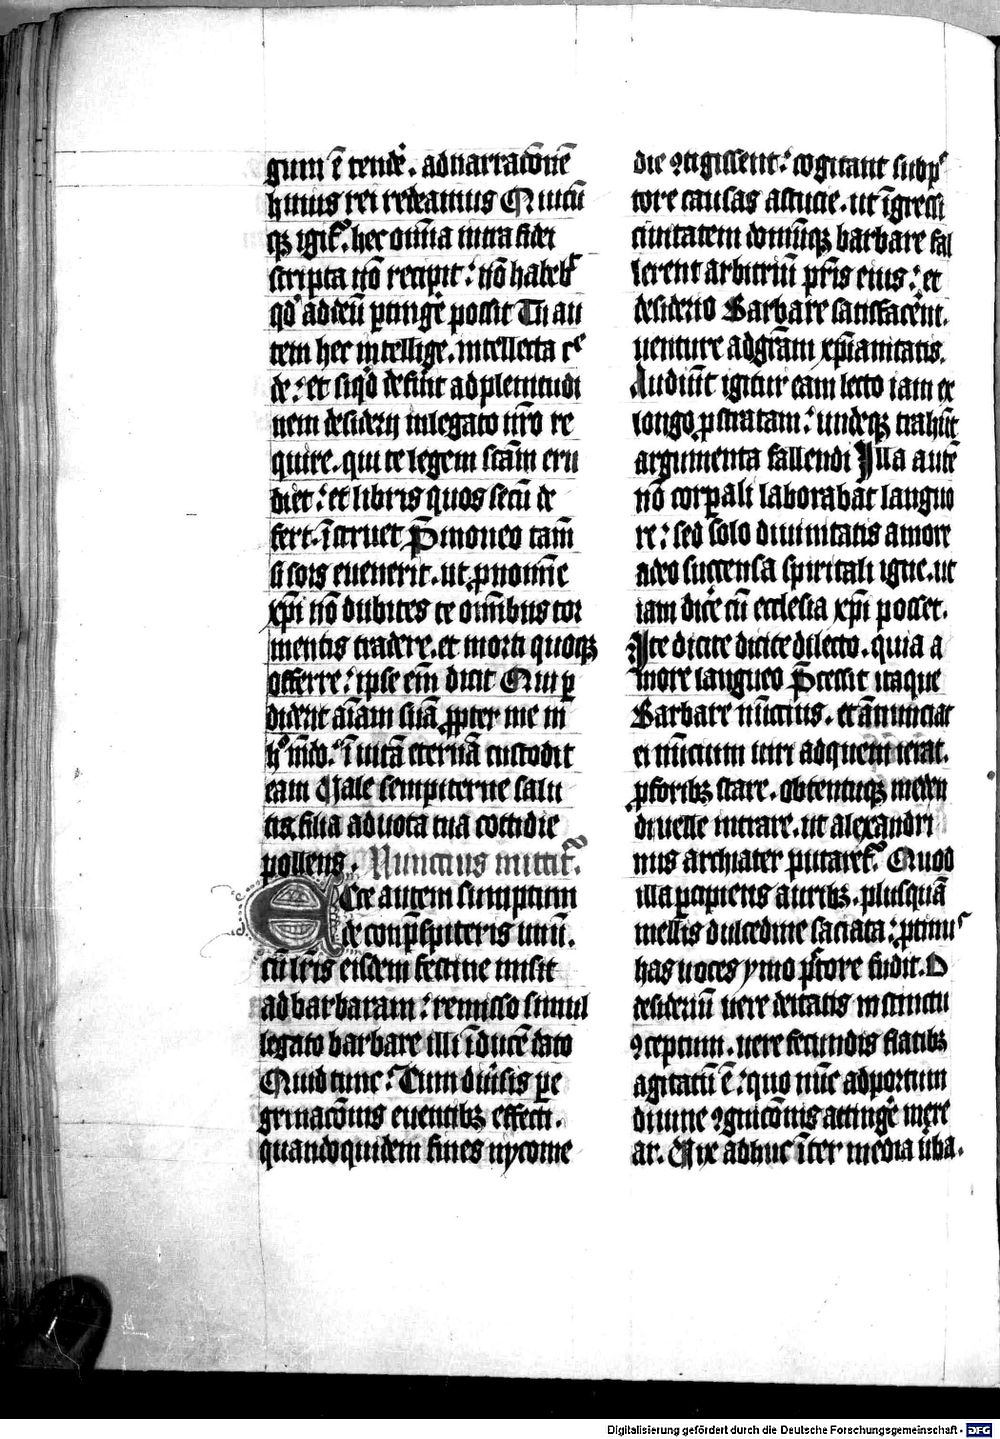 gum ē tendē᷒. ad narracōnē
huius rei redeamus Quicū
qꝫ igit᷑. hec om̄ia intra fidei
scripta nō recipit : nō habeb᷑
qd̓ ad deū ꝑtinge᷑ possit Tu au
tem hec intellige. intellecta c᷒e
de : et siqd̓ defu᷑it ad plenitudi
nem desiderij in legato nr̄o re
quire. qui te legem sc̄am eru
diet : et libris quos secū de
fert. īstruet P̄moneo tam̄
si sors euenerit. ut ꝓ nomīe
xp̄i nō dubites te om̄ibus tor
mentis tradere. et morti quoqꝫ
offerre : ipse em̄ dicit Qui ꝑ
diderit aīam suā ꝓpter me in
h᷒ mūdo : ī uitā eternā custodit
eam Uale sempiterne salu
tis filia ad uota tua cottidie
pollens. Nunctius mittit᷑.
Ecce autem sumptum
de conp̄sbiteris unū.
cū lr̄is eisdem festine misit
ad barbaram : remisso simul
legato barbare illi īducē dato
Quid tunc : Cum diu᷑sis pe
grinacōnis euentibꝫ effecti.
quandoquidem fines nycome
die ꝯtigissent : cogitant sub p᷒
tore causas astucie. ut īgressi
ciuitatem domūqꝫ barbare fal
lerent arbitriū pr̄is eius : et
desiderio Barbare satisfacerēt.
uenture ad gr̄am xp̄ianitatis.
Audiūt igitur eam lecto iam ex
longo ꝓstratam : undeqꝫ trahūt
argumenta fallendi Illa autē
nō corꝑali laborabat languo
re : sed solo diuinitatis amore
adeo succensa spiritali igne. ut
iam dice᷑ cū ecclesia xp̄i posset.
Ite dicite dicite dilecto. quia a
more langueo P̄cessit itaque
Barbare nūctius. et ānunciat
ei nūcium uiri ad quem ierat.
ꝓ foribꝫ stare. obtentuqꝫ meden
di uelle intrare. ut alexandri
nus archiater putaret᷑. Quod
illa ꝑcipiens auribꝫ. plusquā
mellis dulcedine saciata : ꝓtinus
has uoces ymo p̄ctore fudit. O
desideriū uere deitatis instinctu
ꝯceptum. uere fecundis flatibꝫ
agitatū ē : quo nūc ad portum
diuine ꝯgnicōnis attinge᷑ mere
ar. Uix adhuc īter media u᷑ba.
Digitalisierung gefördert durch die Deutsche Forschungsgemeinschaft - DFG